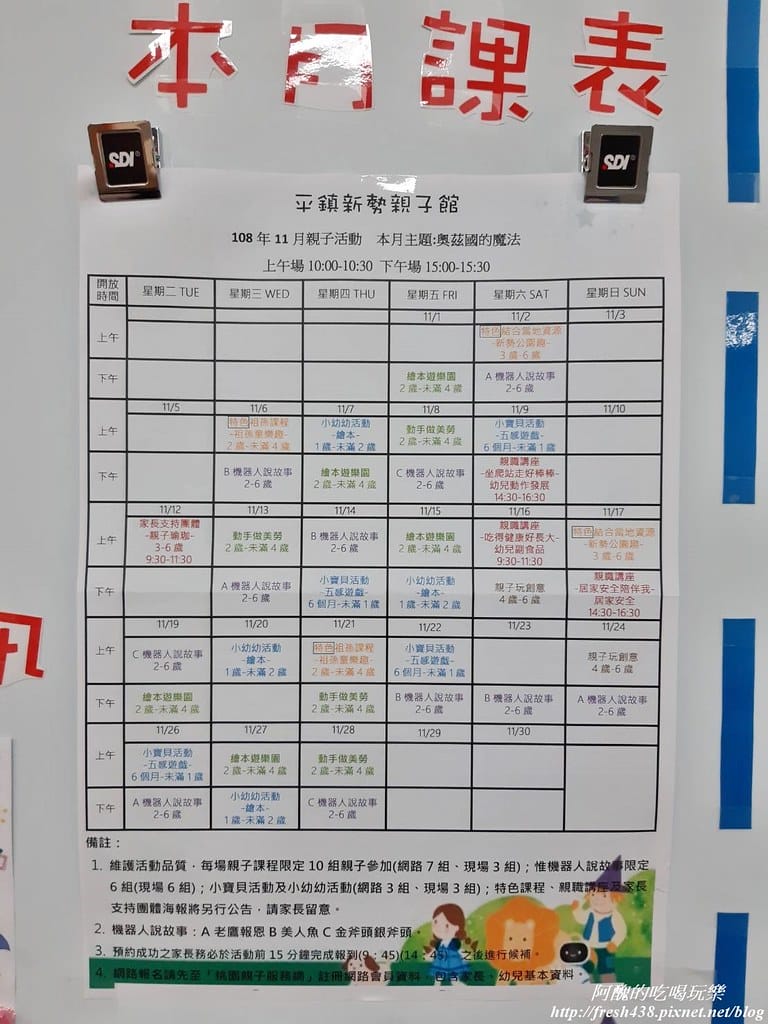 本月課表
SDI
SDI
平鎮新勢親子館
108 年 11 月親子活動 本月主題:奧茲國的魔法
上午場 10:00-10:30 下午場 15:00-15:30
開放時間 星期二 TUE 星期三 WED 星期四 THU 星期五 FRI 星期六 SAT 星期日 SUN
11/1 11/2 11/3
上午
特色結合當地資源
-新勢公園趣-
3 歲-6 歲
下午
繪本遊樂園
2 歲-未滿 4 歲
A 機器人說故事
2-6 歲
11/5 11/6 11/7 11/8 11/9 11/10
上午
特色祖孫課程
-祖孫童樂趣-
2 歲-未滿 4 歲
小幼幼活動
-繪本-
1 歲-未滿 2 歲
動手做美勞
2 歲-未滿 4 歲
小寶貝活動
-五感遊戲-
6 個月-未滿 1 歲
下午
B 機器人說故事
2-6 歲
繪本遊樂園
2 歲-未滿 4 歲
C 機器人說故事
2-6 歲
親職講座
-坐爬站走好棒棒-
幼兒動作發展
14:30-16:30
11/12 11/13 11/14 11/15 11/16 11/17
上午
家長支持團體
-親子瑜珈-
3-6 歲
9:30-11:30
動手做美勞
2 歲-未滿 4 歲
B 機器人說故事
2-6 歲
繪本遊樂園
2 歲-未滿 4 歲
親職講座
-吃得健康好長大-
幼兒副食品
9:30-11:30
特色結合當地資源
-新勢公園趣-
3 歲-6 歲
下午
A 機器人說故事
2-6 歲
小寶貝活動
-五感遊戲-
6 個月-未滿 1 歲
小幼幼活動
-繪本-
1 歲-未滿 2 歲
親子玩創意
4 歲-6 歲
親職講座
-居家安全陪伴我-
居家安全
14:30-16:30
11/19 11/20 11/21 11/22 11/23 11/24
上午
C 機器人說故事
2-6 歲
小幼幼活動
-繪本-
1 歲-未滿 2 歲
特色祖孫課程
-祖孫童樂趣-
2 歲-未滿 4 歲
小寶貝活動
-五感遊戲-
6 個月-未滿 1 歲
親子玩創意
4 歲-6 歲
下午
繪本遊樂園
2 歲-未滿 4 歲
動手做美勞
2 歲-未滿 4 歲
B 機器人說故事
2-6 歲
B 機器人說故事
2-6 歲
A 機器人說故事
2-6 歲
11/26 11/27 11/28 11/29 11/30
上午
小寶貝活動
-五感遊戲-
6 個月-未滿 1 歲
繪本遊樂園
2 歲-未滿 4 歲
動手做美勞
2 歲-未滿 4 歲
下午
A 機器人說故事
2-6 歲
小幼幼活動
-繪本-
1 歲-未滿 2 歲
C 機器人說故事
2-6 歲
備註：
1. 維護活動品質，每場親子課程限定 10 組親子參加(網路 7 組、現場 3 組)；惟機器人說故事限定
6 組(現場 6 組)；小寶貝活動及小幼幼活動(網路 3 組、現場 3 組)；特色課程、親職講座及家長
支持團體海報將另行公告，請家長留意。
2. 機器人說故事：A 老鷹報恩 B 美人魚 C 金斧頭銀斧頭。
3. 預約成功之家長務必於活動前 15 分鐘完成報到(9：45)(14：45)，之後進行候補。
4. 網路報名請先至「桃園親子服務網」註冊網路會員資料，包含家長、幼兒基本資料。
阿醜的吃喝玩樂
http://fresh438.pixnet.net/blog